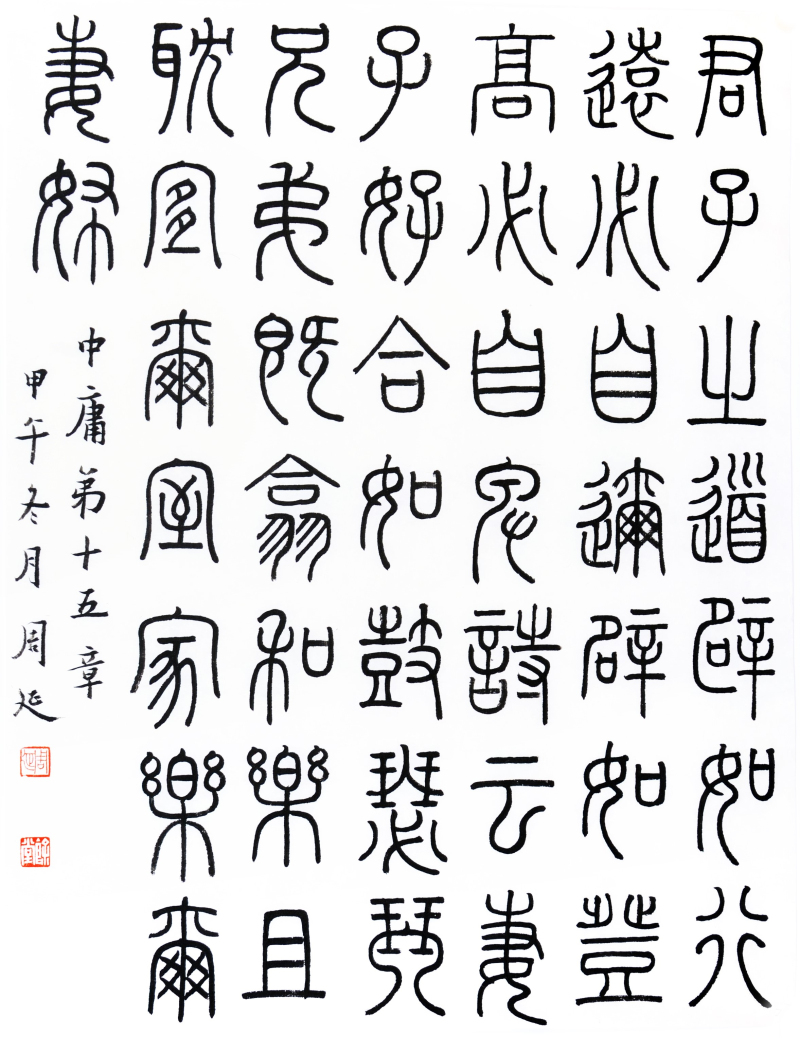 君子之道辟如行
遠必自邇辟如登
高必自卑詩云妻
子好合如鼓瑟琴
兄弟既翕和樂且
耽宜爾室家樂爾
妻帑
中庸第十五章
甲午冬月周延
周延